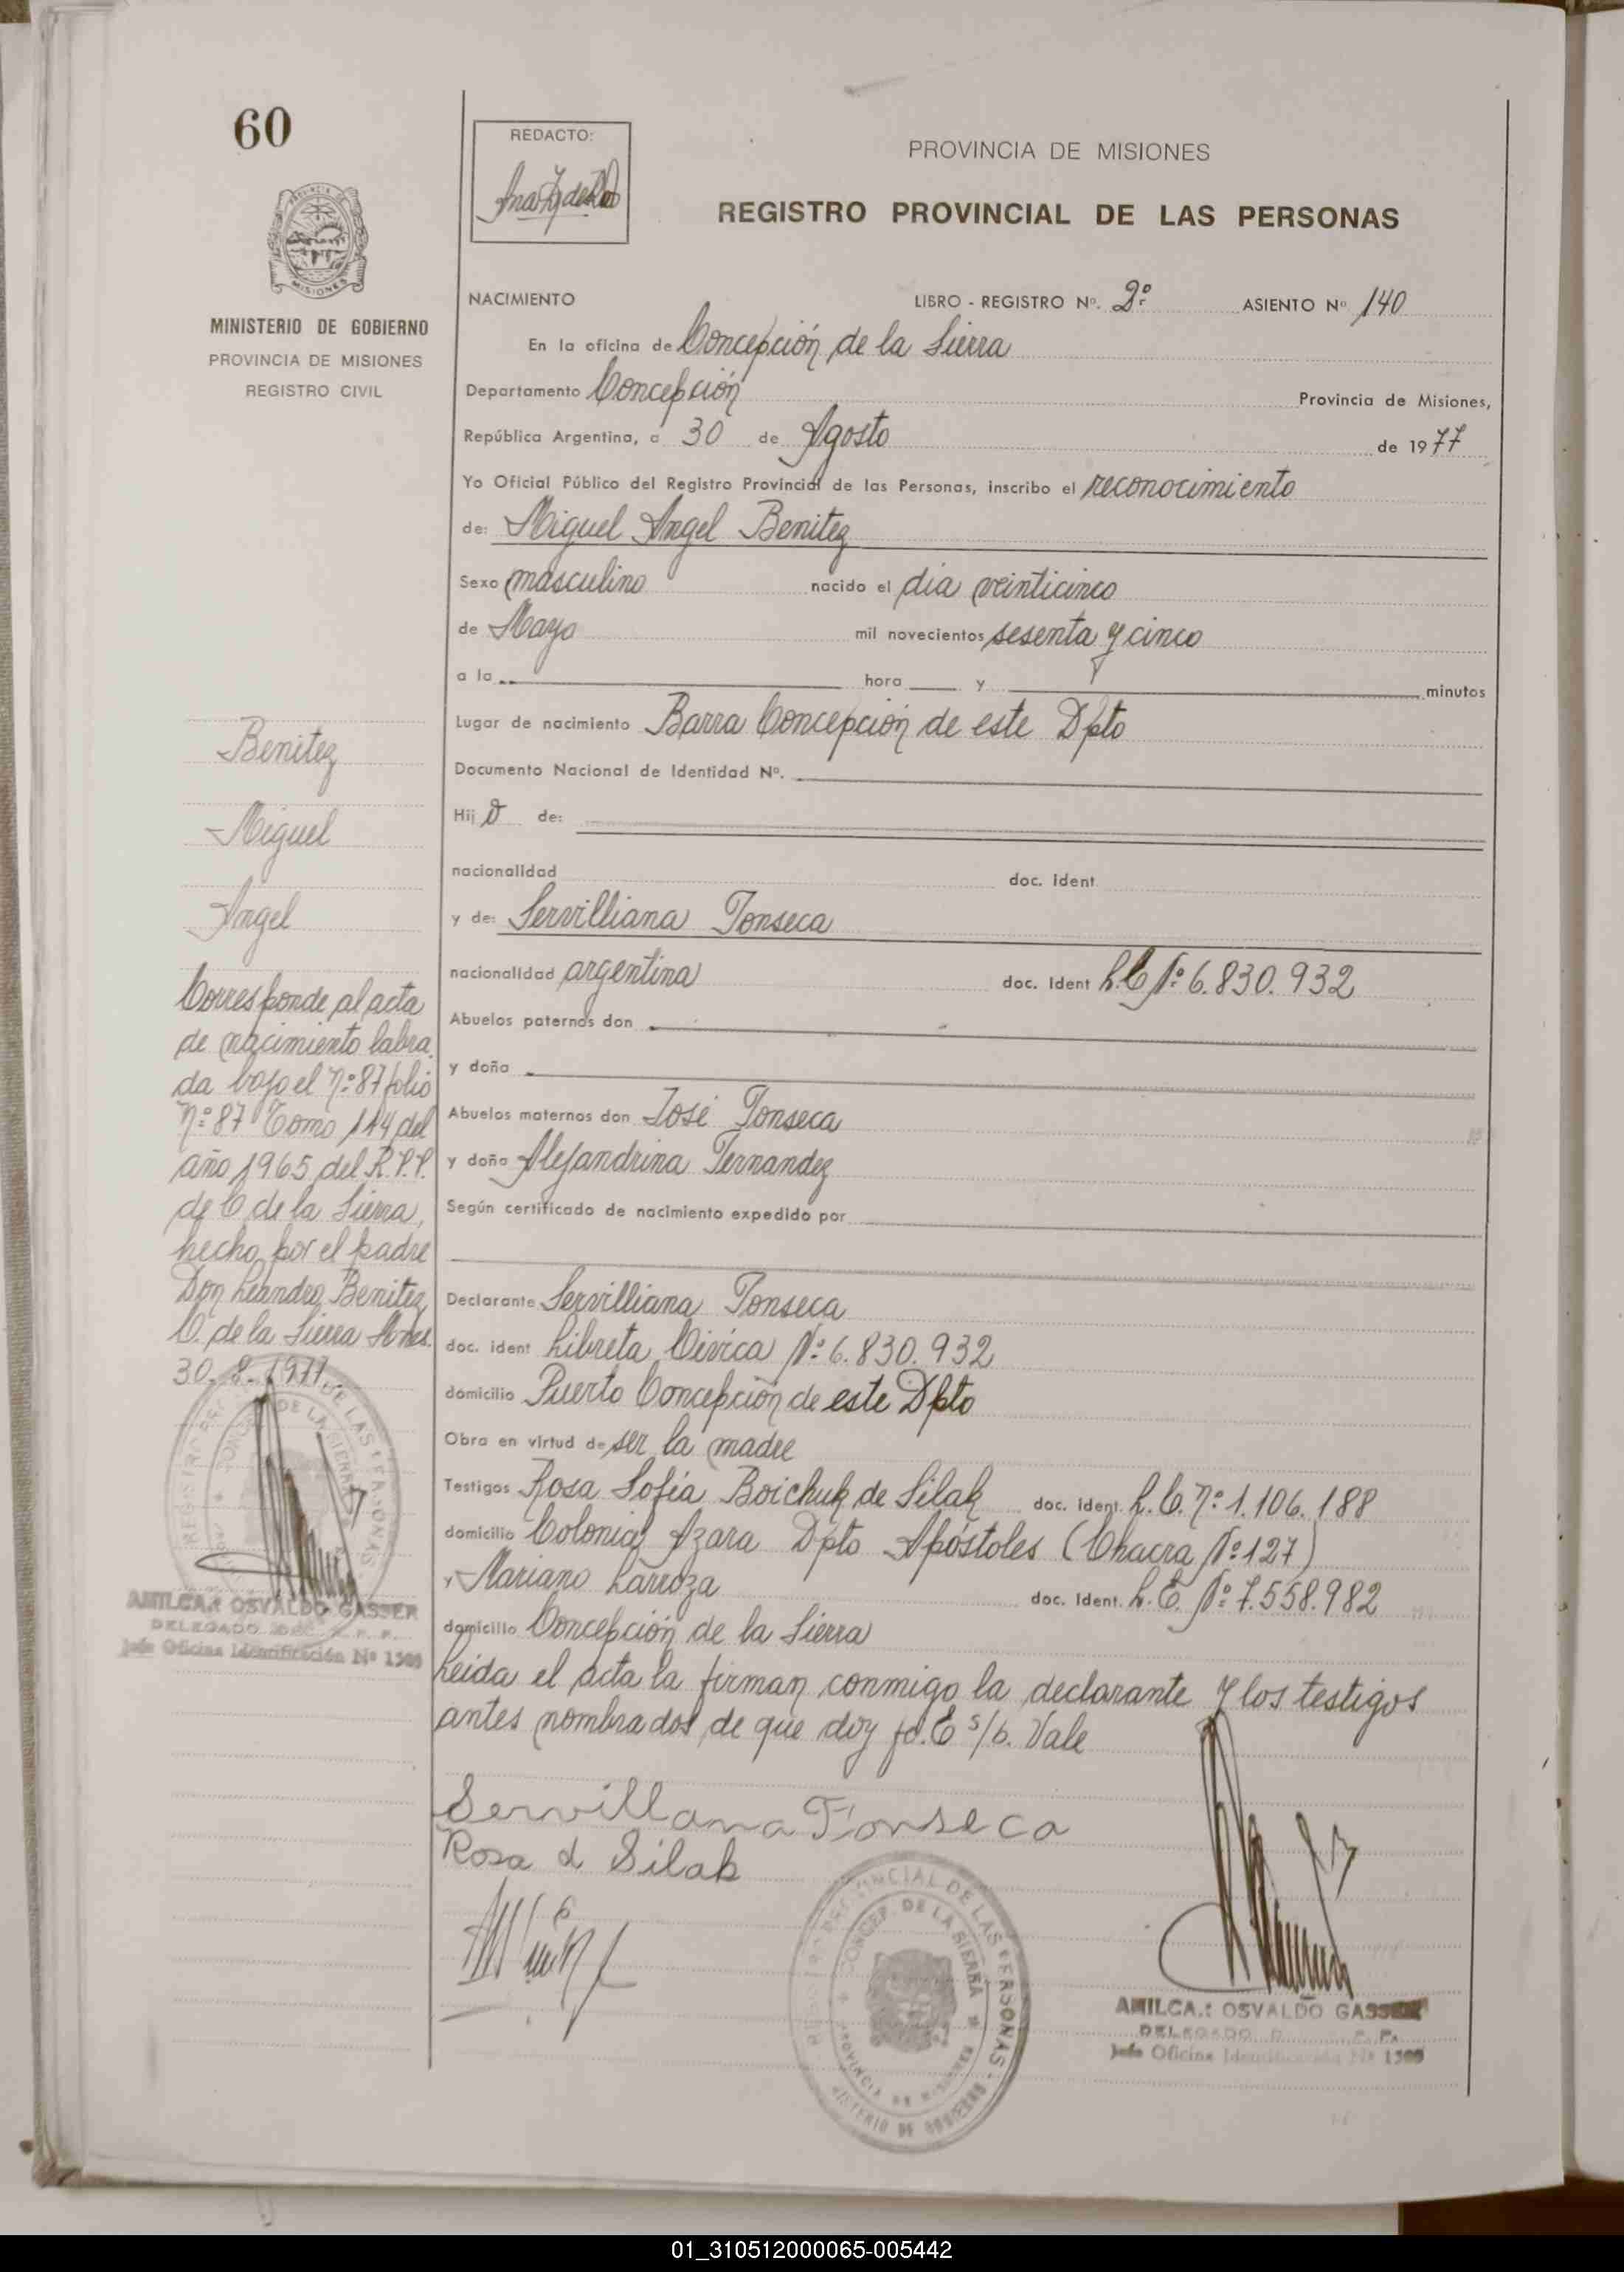 60
REDACTO:
PROVINCIA DE MISIONES
REGISTRO PROVINCIAL DE LAS PERSONAS
MINISTERIO DE GOBIERNO
PROVINCIA DE MISIONES
REGISTRO CIVIL
NACIMIENTO LIBRO - REGISTRO Nº. 2º ASIENTO Nº 140
En la oficina de Concepción de la Sierra
Departamento Concepción Provincia de Misiones,
República Argentina, a 30 de Agosto de 1977
Yo Oficial Público del Registro Provincial de las Personas, inscribo el reconocimiento
de: Miguel Angel Benitez
Sexo masculino nacido el día veinticinco
de Mayo mil novecientos sesenta y cinco
a la hora y minutos
Lugar de nacimiento Barra Concepción de este Dpto
Documento Nacional de Identidad Nº.
Hij o de:
nacionalidad doc. ident
y de: Servilliana Fonseca
nacionalidad argentina doc. Ident L.C Nº 6.830.932
Abuelos paternos don
y doña
Abuelos maternos don José Fonseca
y doña Alejandrina Fernandez
Según certificado de nacimiento expedido por
Declarante Servilliana Fonseca
doc. ident Libreta Cívica Nº 6.830.932
domicilio Puerto Concepción de este Dpto
Obra en virtud de ser la madre
Testigos Rosa Sofía Boichuk de Silak doc. ident. L.C. Nº 1.106.188
domicilio Colonia Azara Dpto Apóstoles (Chacra Nº 127)
y Mariano Larroza doc. Ident. L.E. Nº 7.558.982
domicilio Concepción de la Sierra
Leida el acta la firman conmigo la declarante y los testigos
antes nombrados de que doy fé. E s/b. Vale
Servillana Fonseca
Rosa d Silak
AMILCAR OSVALDO GASSER
DELEGADO
Jefe Oficina Identificación Nº 1509
REGISTRO PROVINCIAL DE LAS PERSONAS
CONCEP. DE LA SIERRA
PROVINCIA DE MISIONES
MINISTERIO DE GOBIERNO
Benitez
Miguel
Angel
Corresponde al acta
de nacimiento labra
da bajo el Nº 87 folio
Nº 87 Tomo 144 del
año 1965 del R.P.P.
de C de la Sierra,
hecho por el padre
Don Leandro Benitez
C. de la Sierra Mnes.
30-8-1977
AMILCAR OSVALDO GASSER
DELEGADO
Jefe Oficina Identificación Nº 1509
01_310512000065-005442